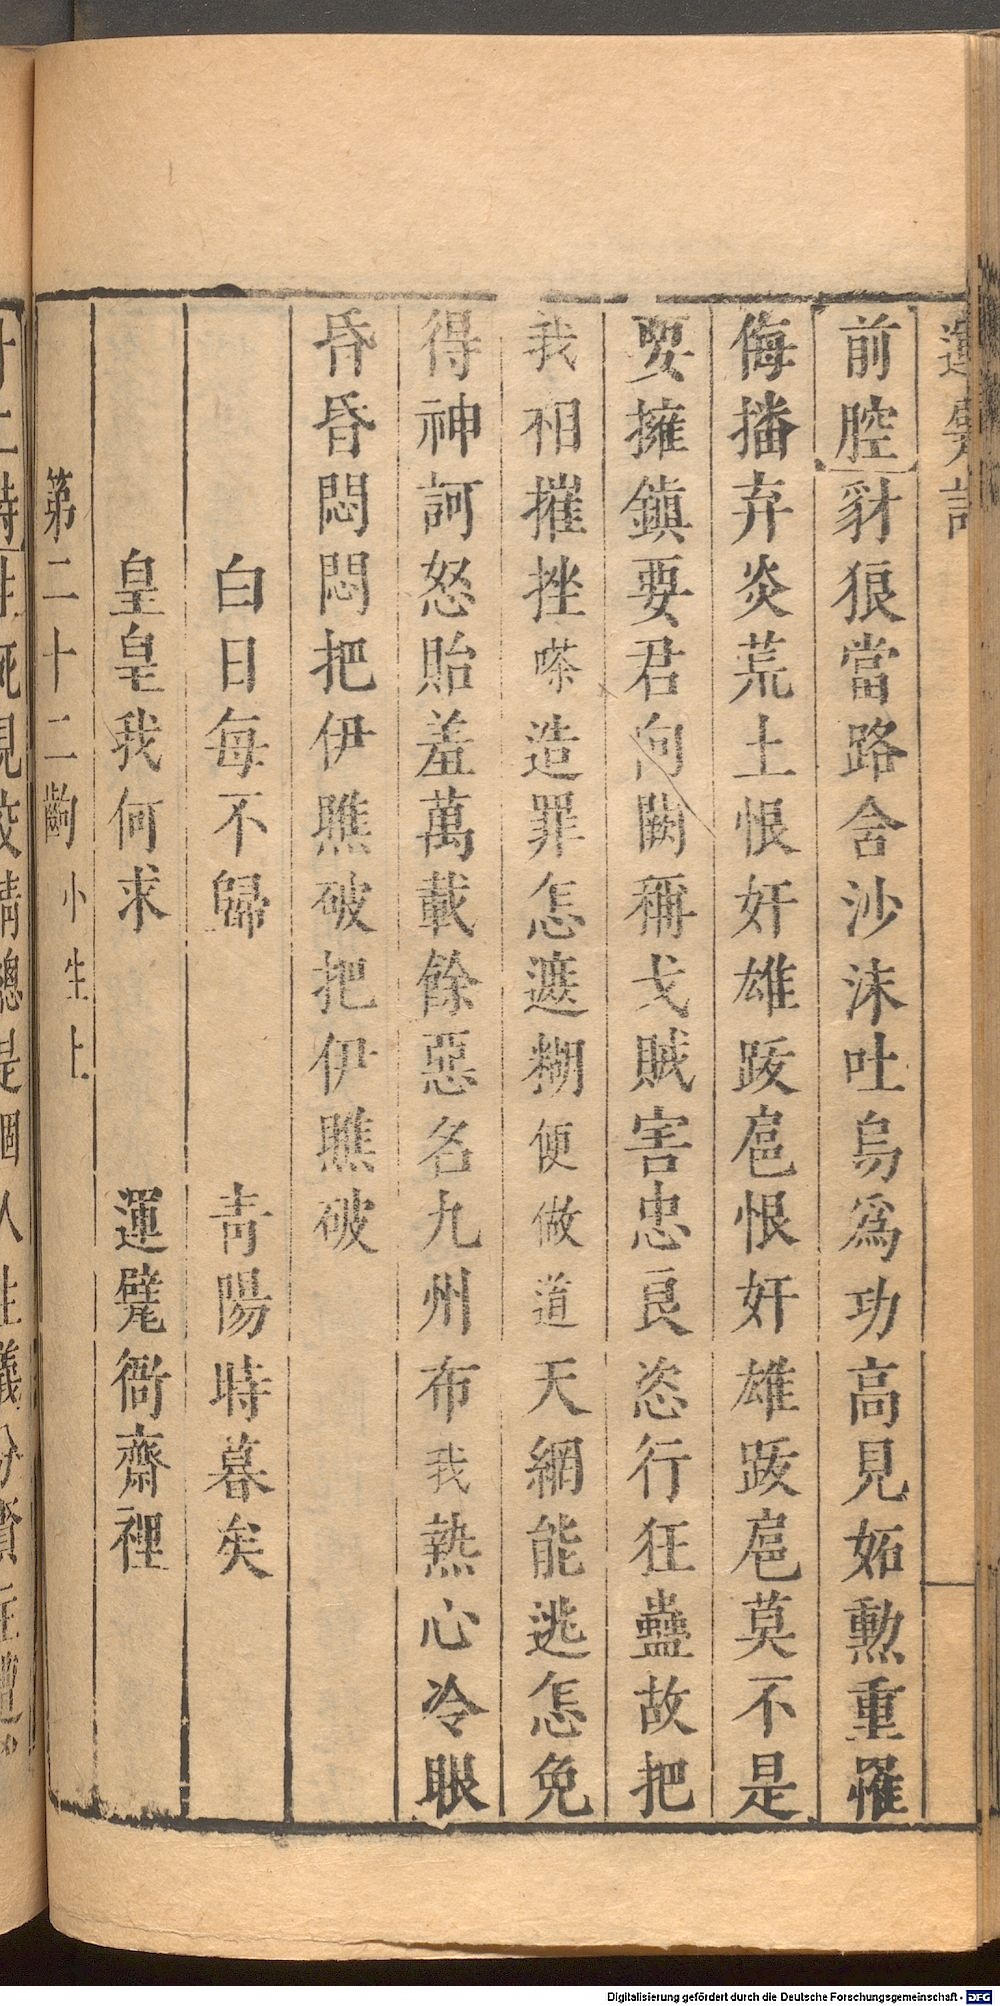 運甓記
前腔 豺狼當路舍沙沫吐烏爲功高見妬勲重罹
侮播弃炎荒土恨奸雄跋扈恨奸雄跋扈莫不是
要擁鎮要君向闕稱戈賊害忠良恣行狂蠱故把
我相摧挫嗏造罪怎遮糊便做道天網能逃怎免
得神訶怒貽羞萬載餘惡名九州布我熱心冷眼
昏昏悶悶把伊瞧破把伊瞧破
白日每不歸 青陽時暮矣
皇皇我何求 運甓衙齋裡
第二十二齣 小生上
見 總是個人
Digitalisierung gefördert durch die Deutsche Forschungsgemeinschaft - DFG